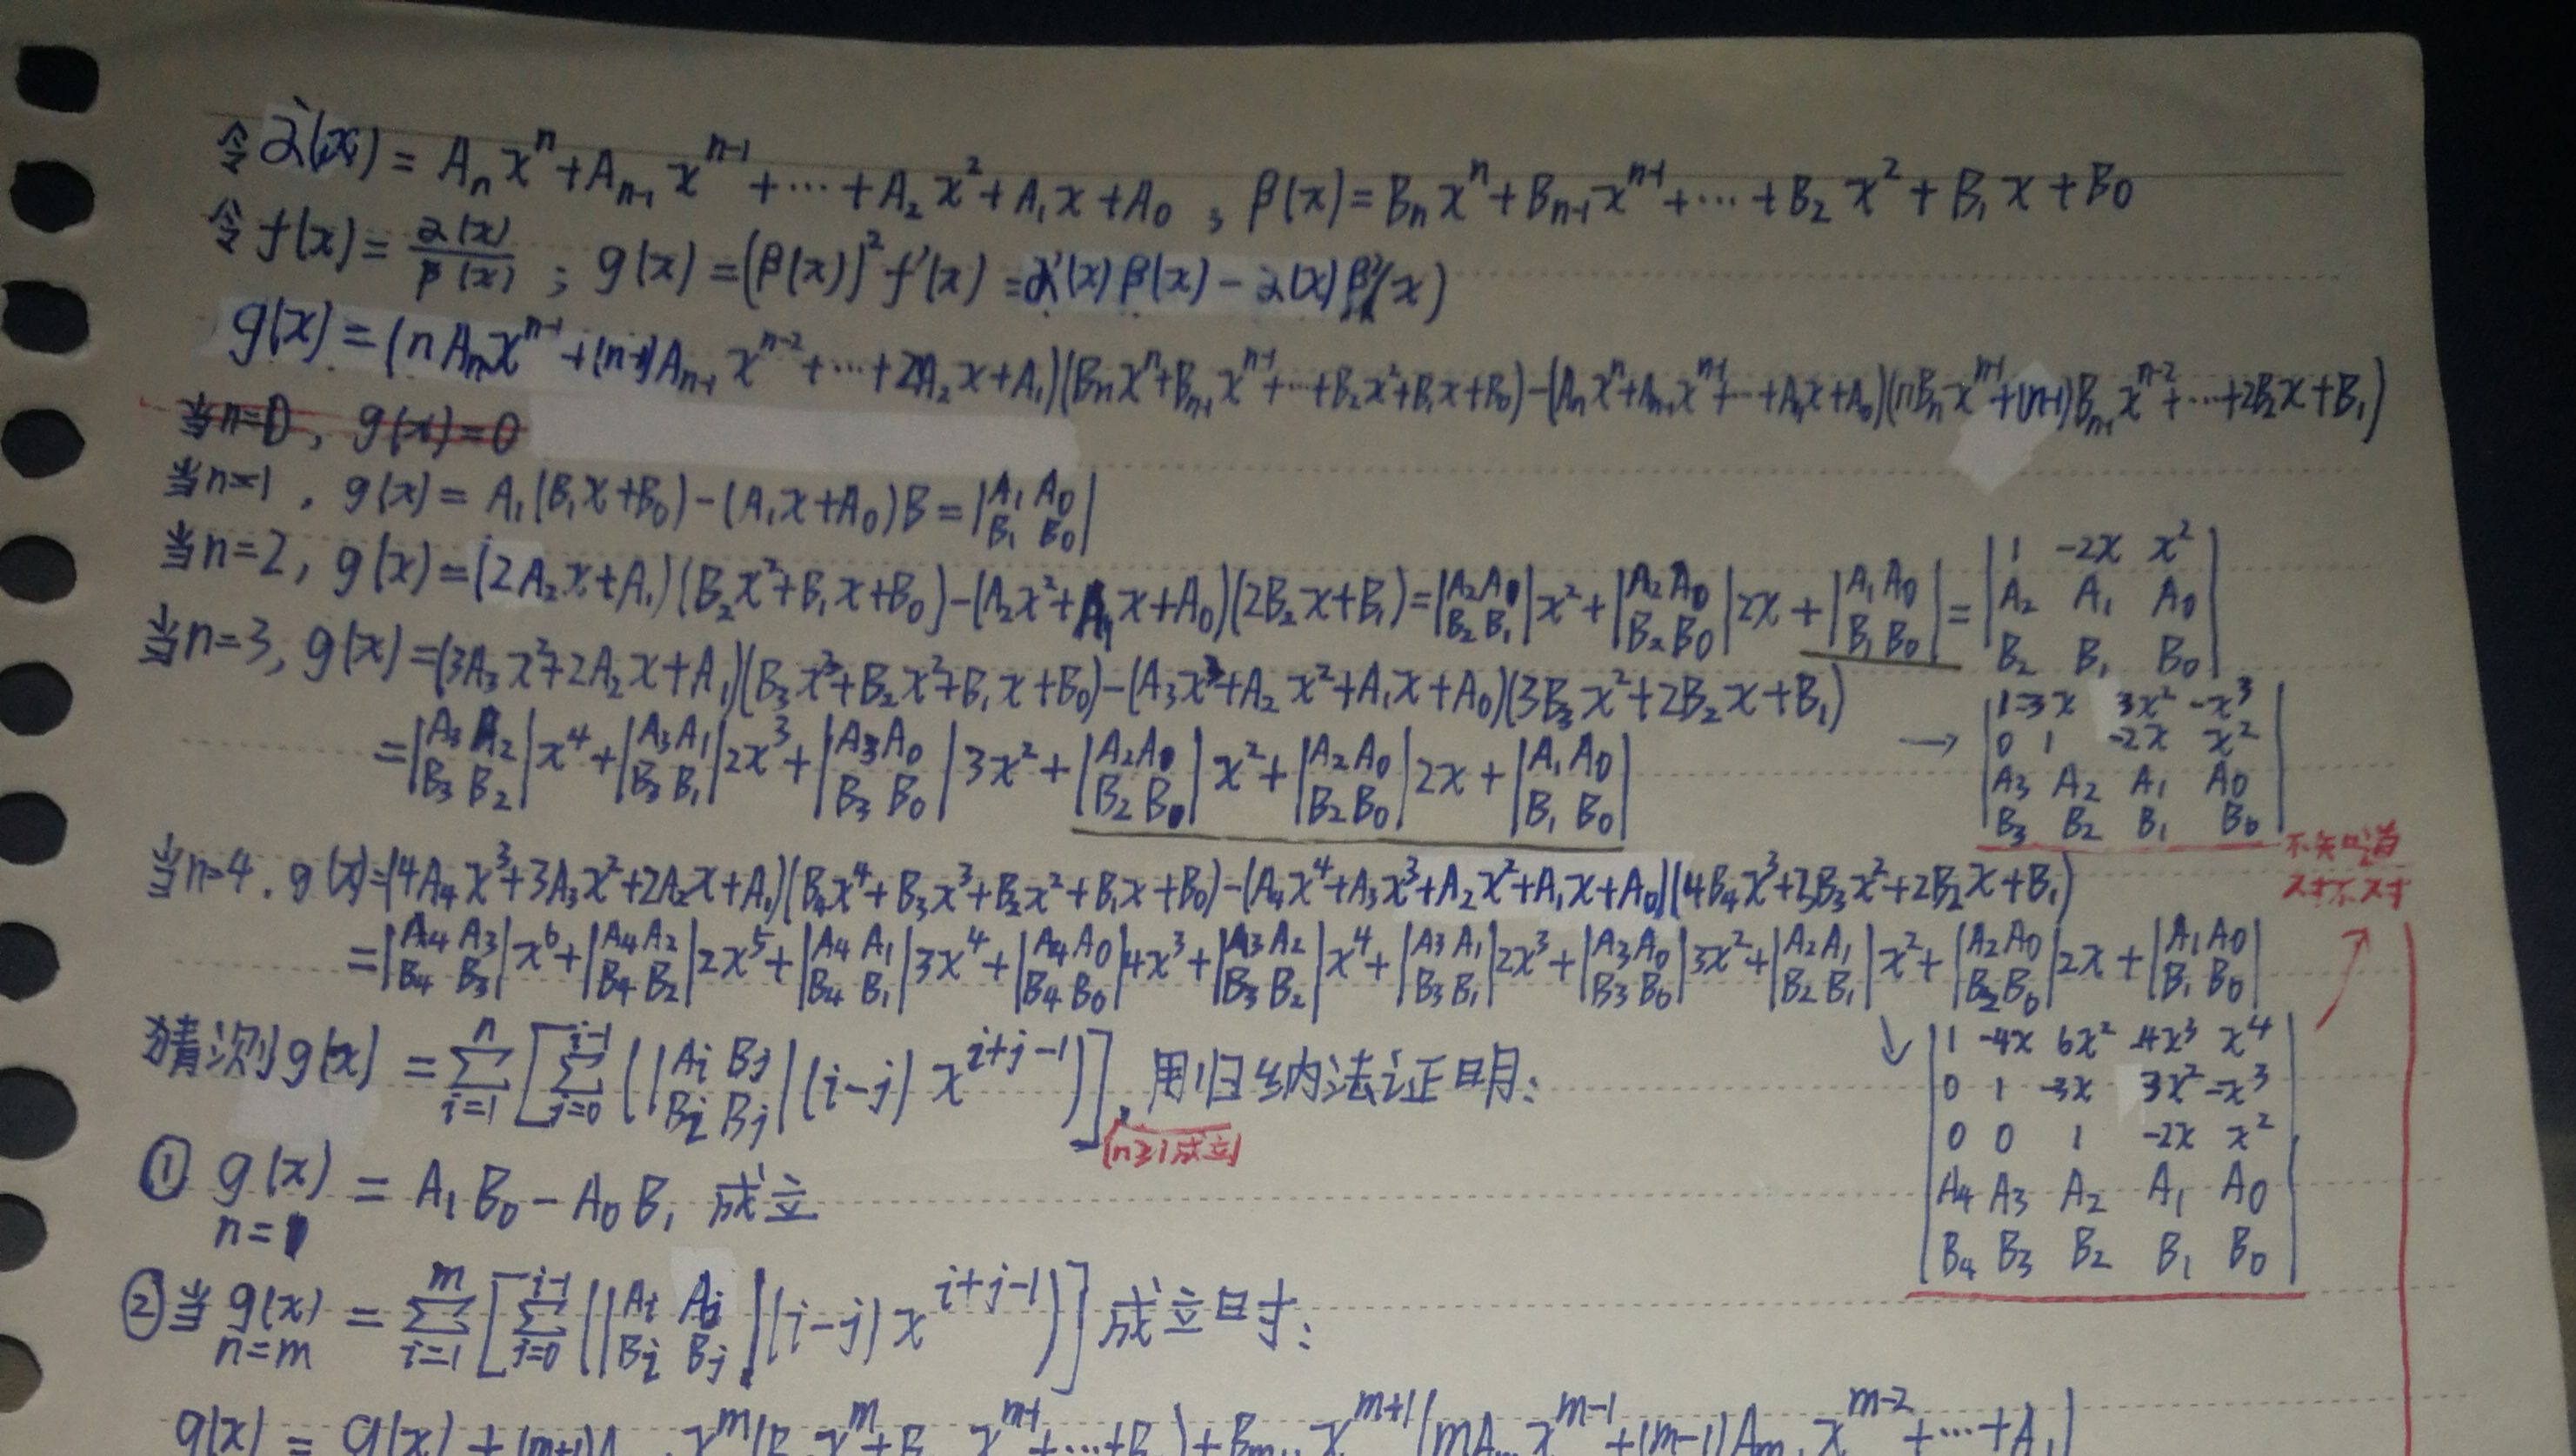 令 α(x) = Aₙxⁿ + Aₙ₋₁xⁿ⁻¹ + ⋯ + A₂x² + A₁x + A₀ ; β(x) = Bₙxⁿ + Bₙ₋₁xⁿ⁻¹ + ⋯ + B₂x² + B₁x + B₀
令 f(x) = α(x)/β(x) ; g(x) = (β(x))² f'(x) = α'(x)β(x) − α(x)β'(x)
g(x) = (nAₙxⁿ⁻¹ + (n-1)Aₙ₋₁xⁿ⁻² + ⋯ + 2A₂x + A₁)(Bₙxⁿ + Bₙ₋₁xⁿ⁻¹ + ⋯ + B₂x² + B₁x + B₀) − (Aₙxⁿ + Aₙ₋₁xⁿ⁻¹ + ⋯ + A₁x + A₀)(nBₙxⁿ⁻¹ + (n-1)Bₙ₋₁xⁿ⁻² + ⋯ + 2B₂x + B₁)
当n=0, g(x)=0
当n=1, g(x) = A₁(B₁x+B₀) − (A₁x+A₀)B = |A₁ A₀; B₁ B₀|
当n=2, g(x) = (2A₂x+A₁)(B₂x²+B₁x+B₀) − (A₂x²+A₁x+A₀)(2B₂x+B₁) = |A₂ A₁; B₂ B₁|x² + |A₂ A₀; B₂ B₀|2x + |A₁ A₀; B₁ B₀| = |1 -2x x²; A₂ A₁ A₀; B₂ B₁ B₀|
当n=3, g(x) = (3A₃x²+2A₂x+A₁)(B₃x³+B₂x²+B₁x+B₀) − (A₃x³+A₂x²+A₁x+A₀)(3B₃x²+2B₂x+B₁)
= |A₃ A₂; B₃ B₂|x⁴ + |A₃ A₁; B₃ B₁|2x³ + |A₃ A₀; B₃ B₀|3x² + |A₂ A₀; B₂ B₀|x² + |A₂ A₀; B₂ B₀|2x + |A₁ A₀; B₁ B₀| → |1 -3x 3x² -x³; 0 1 -2x x²; A₃ A₂ A₁ A₀; B₃ B₂ B₁ B₀|
不知道
对不对
当n=4, g(x) = (4A₄x³+3A₃x²+2A₂x+A₁)(B₄x⁴+B₃x³+B₂x²+B₁x+B₀) − (A₄x⁴+A₃x³+A₂x²+A₁x+A₀)(4B₄x³+3B₃x²+2B₂x+B₁)
= |A₄ A₃; B₄ B₃|x⁶ + |A₄ A₂; B₄ B₂|2x⁵ + |A₄ A₁; B₄ B₁|3x⁴ + |A₄ A₀; B₄ B₀|4x³ + |A₃ A₂; B₃ B₂|x⁴ + |A₃ A₁; B₃ B₁|2x³ + |A₃ A₀; B₃ B₀|3x² + |A₂ A₁; B₂ B₁|x² + |A₂ A₀; B₂ B₀|2x + |A₁ A₀; B₁ B₀|
↓ |1 -4x 6x² -4x³ x⁴; 0 1 -3x 3x² -x³; 0 0 1 -2x x²; A₄ A₃ A₂ A₁ A₀; B₄ B₃ B₂ B₁ B₀|
猜测 g(x) = Σᵢ₌₁ⁿ [Σⱼ₌₀ⁱ⁻¹ (|Aᵢ Bⱼ; Bᵢ Bⱼ|(i-j)xⁱ⁺ʲ⁻¹)], 用归纳法证明:
(n≥1成立)
① g(x) = A₁B₀ − A₀B₁ 成立
n=1
② 当 g(x) = Σᵢ₌₁ᵐ [Σⱼ₌₀ⁱ⁻¹ (|Aᵢ Aⱼ; Bᵢ Bⱼ|(i-j)xⁱ⁺ʲ⁻¹)] 成立时:
n=m